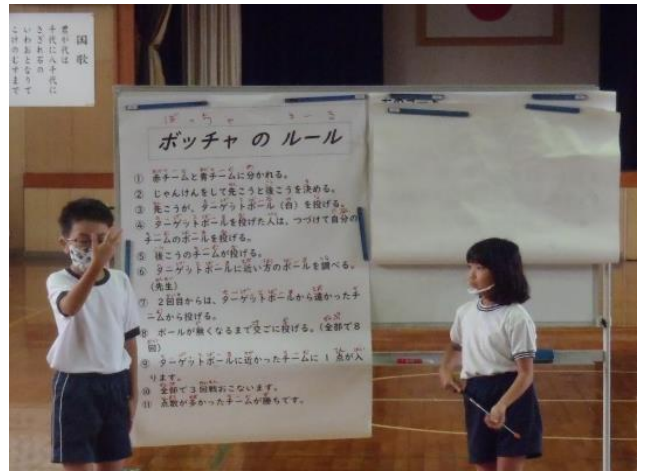 国歌
君が代は
千代に八千代に
さざれ石の
いわおとなりて
こけのむすまで
ぼっちゃ るーる
ボッチャ の ルール
① 赤チームと青チームに分かれる。
② じゃんけんをして先こうと後こうを決める。
③ 先こうが、ターゲットボール(白)を投げる。
④ ターゲットボールを投げた人は、つづけて自分の
チームのボールを投げる。
⑤ 後こうのチームが投げる。
⑥ ターゲットボールに近い方のボールを調べる。
(先生)
⑦ 2回目からは、ターゲットボールから遠かったチ
ームから投げる。
⑧ ボールが無くなるまで交ごに投げる。(全部で8
回)
⑨ ターゲットボールに近かったチームに1点が入
ります。
⑩ 全部で3回戦おこないます。
⑪ 点数が多かったチームが勝ちです。